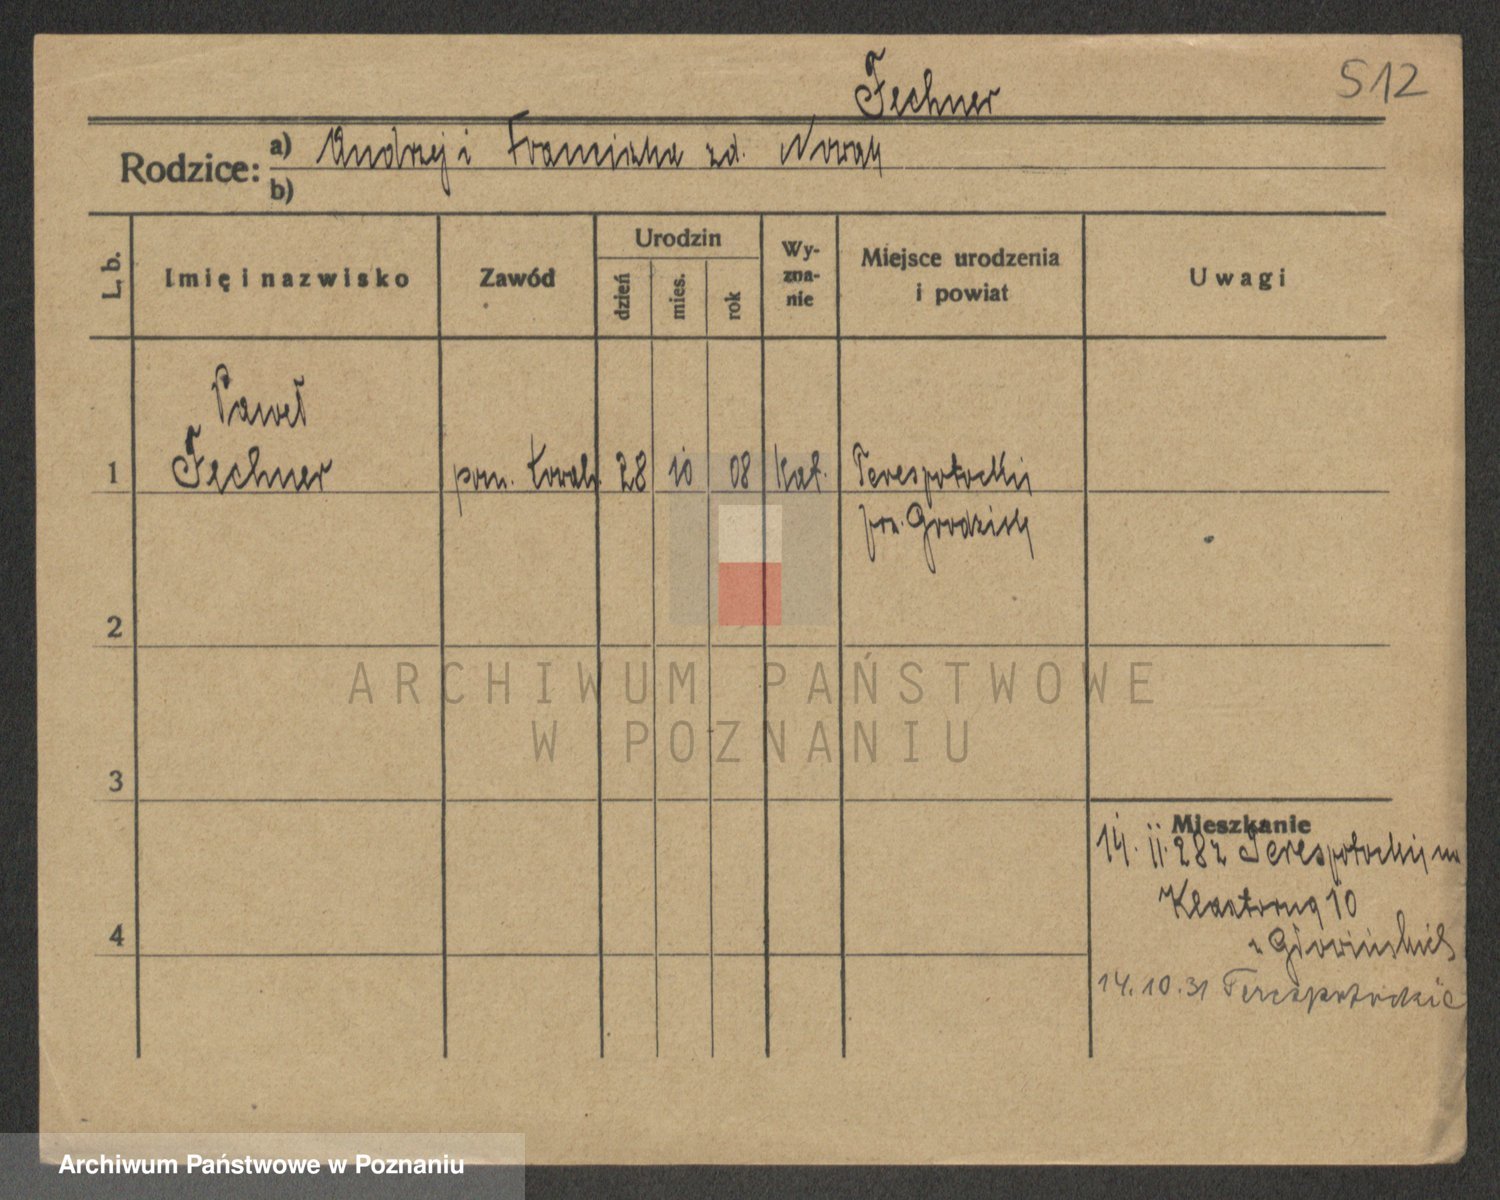 Fechner
512
Rodzice:
a) Andrzej i Franciszka zd. Nowak
b)
L. b.
Imię i nazwisko
Zawód
Urodzin
dzień
mies.
rok
Wy-
zna-
nie
Miejsce urodzenia
i powiat
Uwagi
Paweł
1 Fechner pom. kowal. 28 10 08 kat. Terespotockij
pow. Grodzisk
2
3
4
Mieszkanie
14. 11. 28 z Terespotockij na
10
14.10.31 Terespotockie
ARCHIWUM PAŃSTWOWE
W POZNANIU
Archiwum Państwowe w Poznaniu